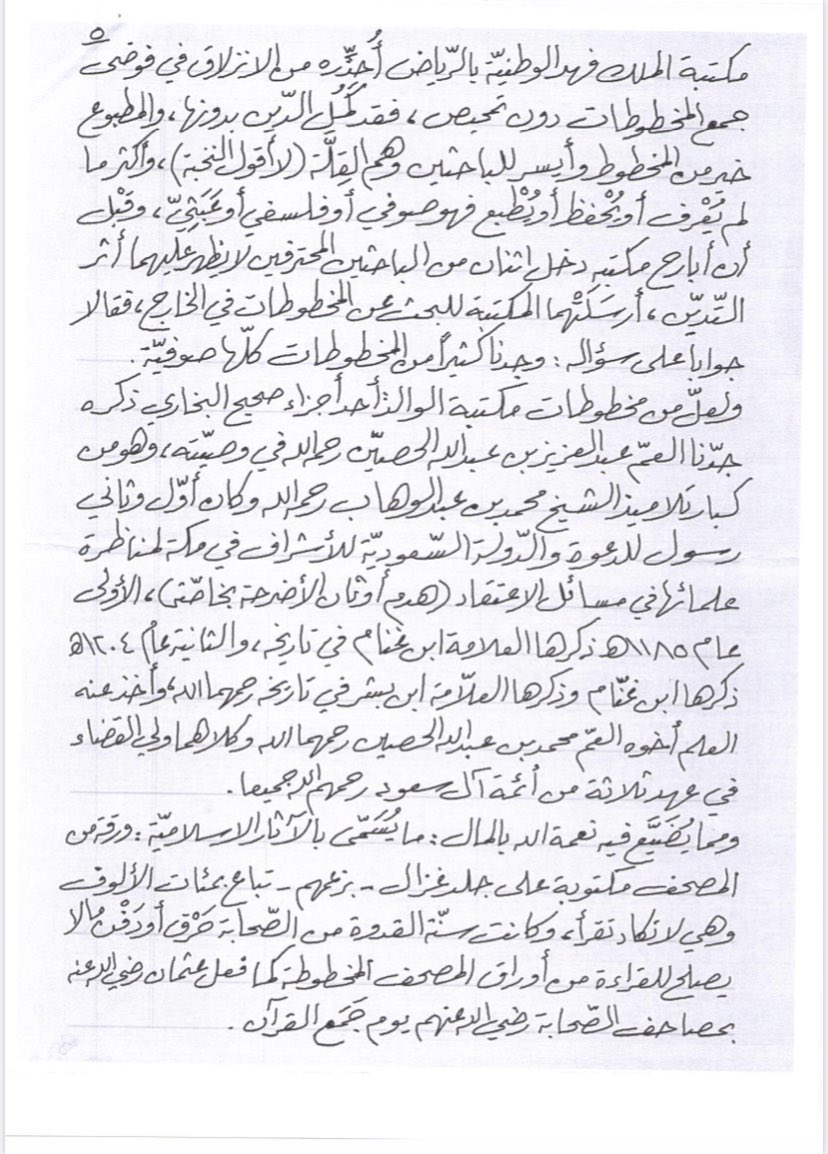 ٥
مكتبة الملك فهد الوطنيّة بالرّياض أُحذِّره من الانزلاق في فوضى
جمع المخطوطات دون تمحيص، فقد كَمُلَ الدّين بدونها، والمطبوع
خير من المخطوط وأيسر للباحثين وهم القِلَّة (لا أقول النخبة)، وأكثر ما
لم يُعْرف أو يُحْفظ أو يُطْبع فهو صوفي أو فلسفي أو عَبَثِيّ، وقَبْل
أن أبارح مكتبه دخل اثنان من الباحثين المحترفين لا يظهر عليهما أثر
التّديّن، أرسَلَتْهما المكتبة للبحث عن المخطوطات في الخارج، فقالا
جوابا على سؤاله: وجدنا كثيراً من المخطوطات كلّها صوفيّة.
ولعلّ من مخطوطات مكتبة الوالد أحد أجزاء صحيح البخاري ذكره
جدّنا العمّ عبد العزيز بن عبد الله الحصيّن رحمه الله في وصيّته، وهو من
كبار تلاميذ الشيخ محمد بن عبد الوهاب رحمه الله وكان أوّل وثاني
رسول للدعوة والدّولة السّعوديّة للأشراف في مكة لمناظرة
علمائها في مسائل الاعتقاد (هدم أوثان الأضرحة بخاصّة)، الأولى
عام ١١٨٥هـ ذكرها العلامة ابن غنام في تاريخه، والثانية عام ١٢٠٤هـ
ذكرها ابن غنّام وذكرها العلّامة ابن بشر في تاريخه رحمهما الله، وأخذ عنه
العلم أخوه العمّ محمد بن عبد الله الحصين رحمهما الله وكلاهما ولي القضاء
في عهد ثلاثة من أئمة آل سعود رحمهم الله جميعا.
ومما يُضَيَّع فيه نعمة الله بالمال: ما يُسَمَّى بالآثار الإسلاميّة: ورقة من
المصحف مكتوبة على جلد غزال - بزعمهم - تباع بمئات الألوف
وهي لا تكاد تقرأ، وكانت سنّة القدوة من الصّحابة حَرْق أو دَفْن ما لا
يصلح للقراءة من أوراق المصحف المخطوطة كما فعل عثمان رضي الله عنه
بمصاحف الصّحابة رضي الله عنهم يوم جَمَع القرآن.